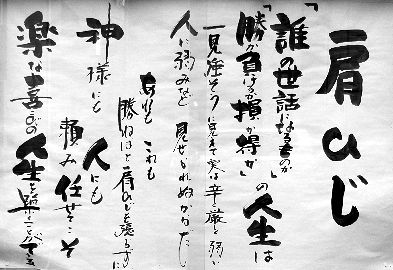 肩ひじ
「誰の世話になるものか」
「勝か負けるか損か得か」の人生は
一見強そうに見えて実は辛く厳しく弱い
人に弱みなど見せられぬからだし
あれもこれも
勝ねばと肩ひじを張らずに
神様にも人にも
頼み任せてこそ
楽な喜びの人生を築くことができる